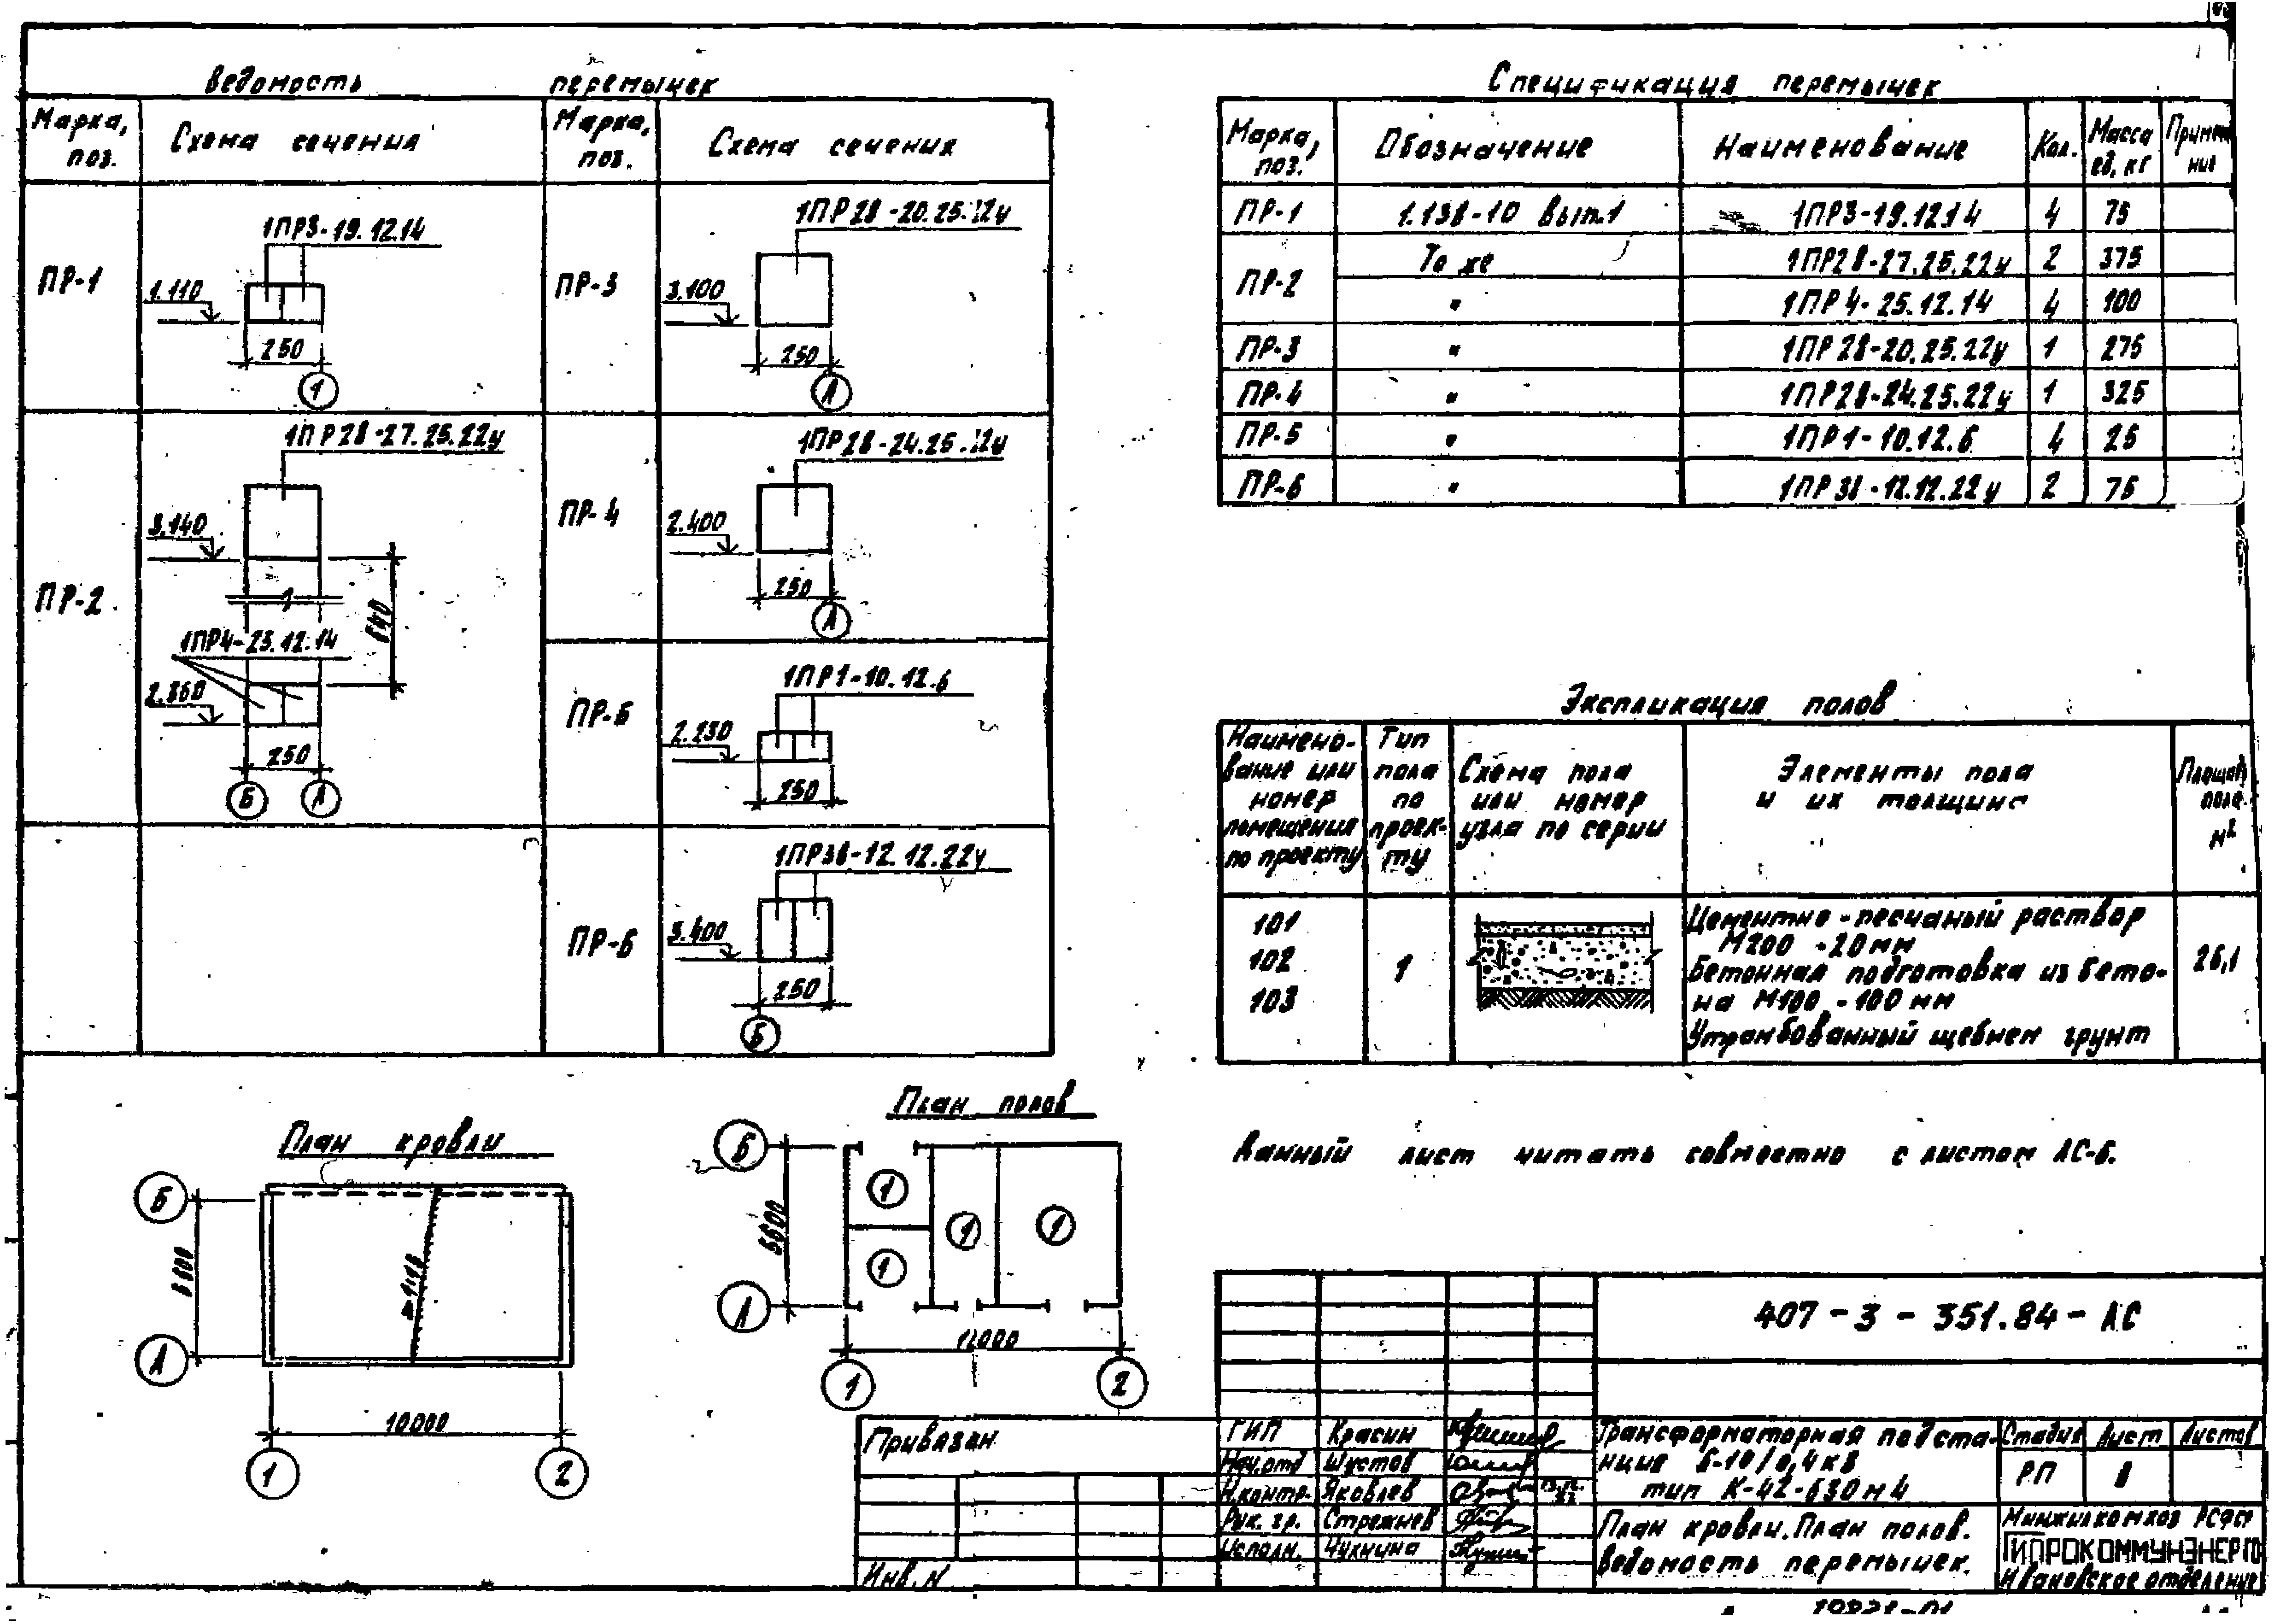 Ведомость перемычек
Марка, поз.
Схема сечения
Марка, поз.
Схема сечения
ПР-1
1ПР3-19.12.14
1.110
250
1
ПР-2
1ПР28-27.25.22у
3.140
640
1ПР4-25.12.14
2.360
250
Б
А
ПР-3
1ПР28-20.25.22у
3.100
250
А
ПР-4
1ПР28-24.25.22у
2.400
250
А
ПР-5
1ПР1-10.12.6
2.230
250
ПР-6
1ПР38-12.12.22у
3.400
250
Б
Спецификация перемычек
Марка, поз.
Обозначение
Наименование
Кол.
Масса ед, кг
ПР-1 1.138-10 вып.1 1ПР3-19.12.14 4 75
ПР-2 То же 1ПР28-27.25.22у 2 375
" 1ПР4-25.12.14 4 100
ПР-3 " 1ПР28-20.25.22у 1 275
ПР-4 " 1ПР28-24.25.22у 1 325
ПР-5 " 1ПР1-10.12.6 4 25
ПР-6 " 1ПР38-12.12.22у 2 75
Экспликация полов
Наимено-
вание или
номер
помещения
по проекту
Тип
пола
по
проек-
ту
Схема пола
или номер
узла по серии
Элементы пола
и их толщина
пола
м2
101
102
103
1
Цементно-песчаный раствор
М200 -20мм
Бетонная подготовка из бето-
на М100 -100мм
Утрамбованный щебнем грунт
План кровли
Б
А
10000
1
2
План полов
Б
1
1
1
1
А
1
2
Данный лист читать совместно с листом АС-6.
407-3-351.84-АС
Привязан
Инв. N
ГИП Красин
Нач.отд Шустов
Н.контр. Яковлев
Рук. гр. Стрежнев
Исполн. Чухнина
Трансформаторная подста-
нция 6-10/0,4кВ
тип К-42-630м4
Стадия Лист Листов
РП 8
План кровли. План полов.
Ведомость перемычек.
Минжилкомхоз РСФСР
ГИПРОКОММУНЭНЕРГО
Ивановское отделение